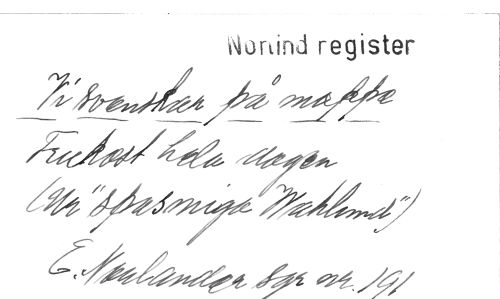 Norlind register
Vi svenskar på mappe
Frukost hela dagen
(Ur "spasmiga Wahlund")
E. Norlander sgr nr. 191